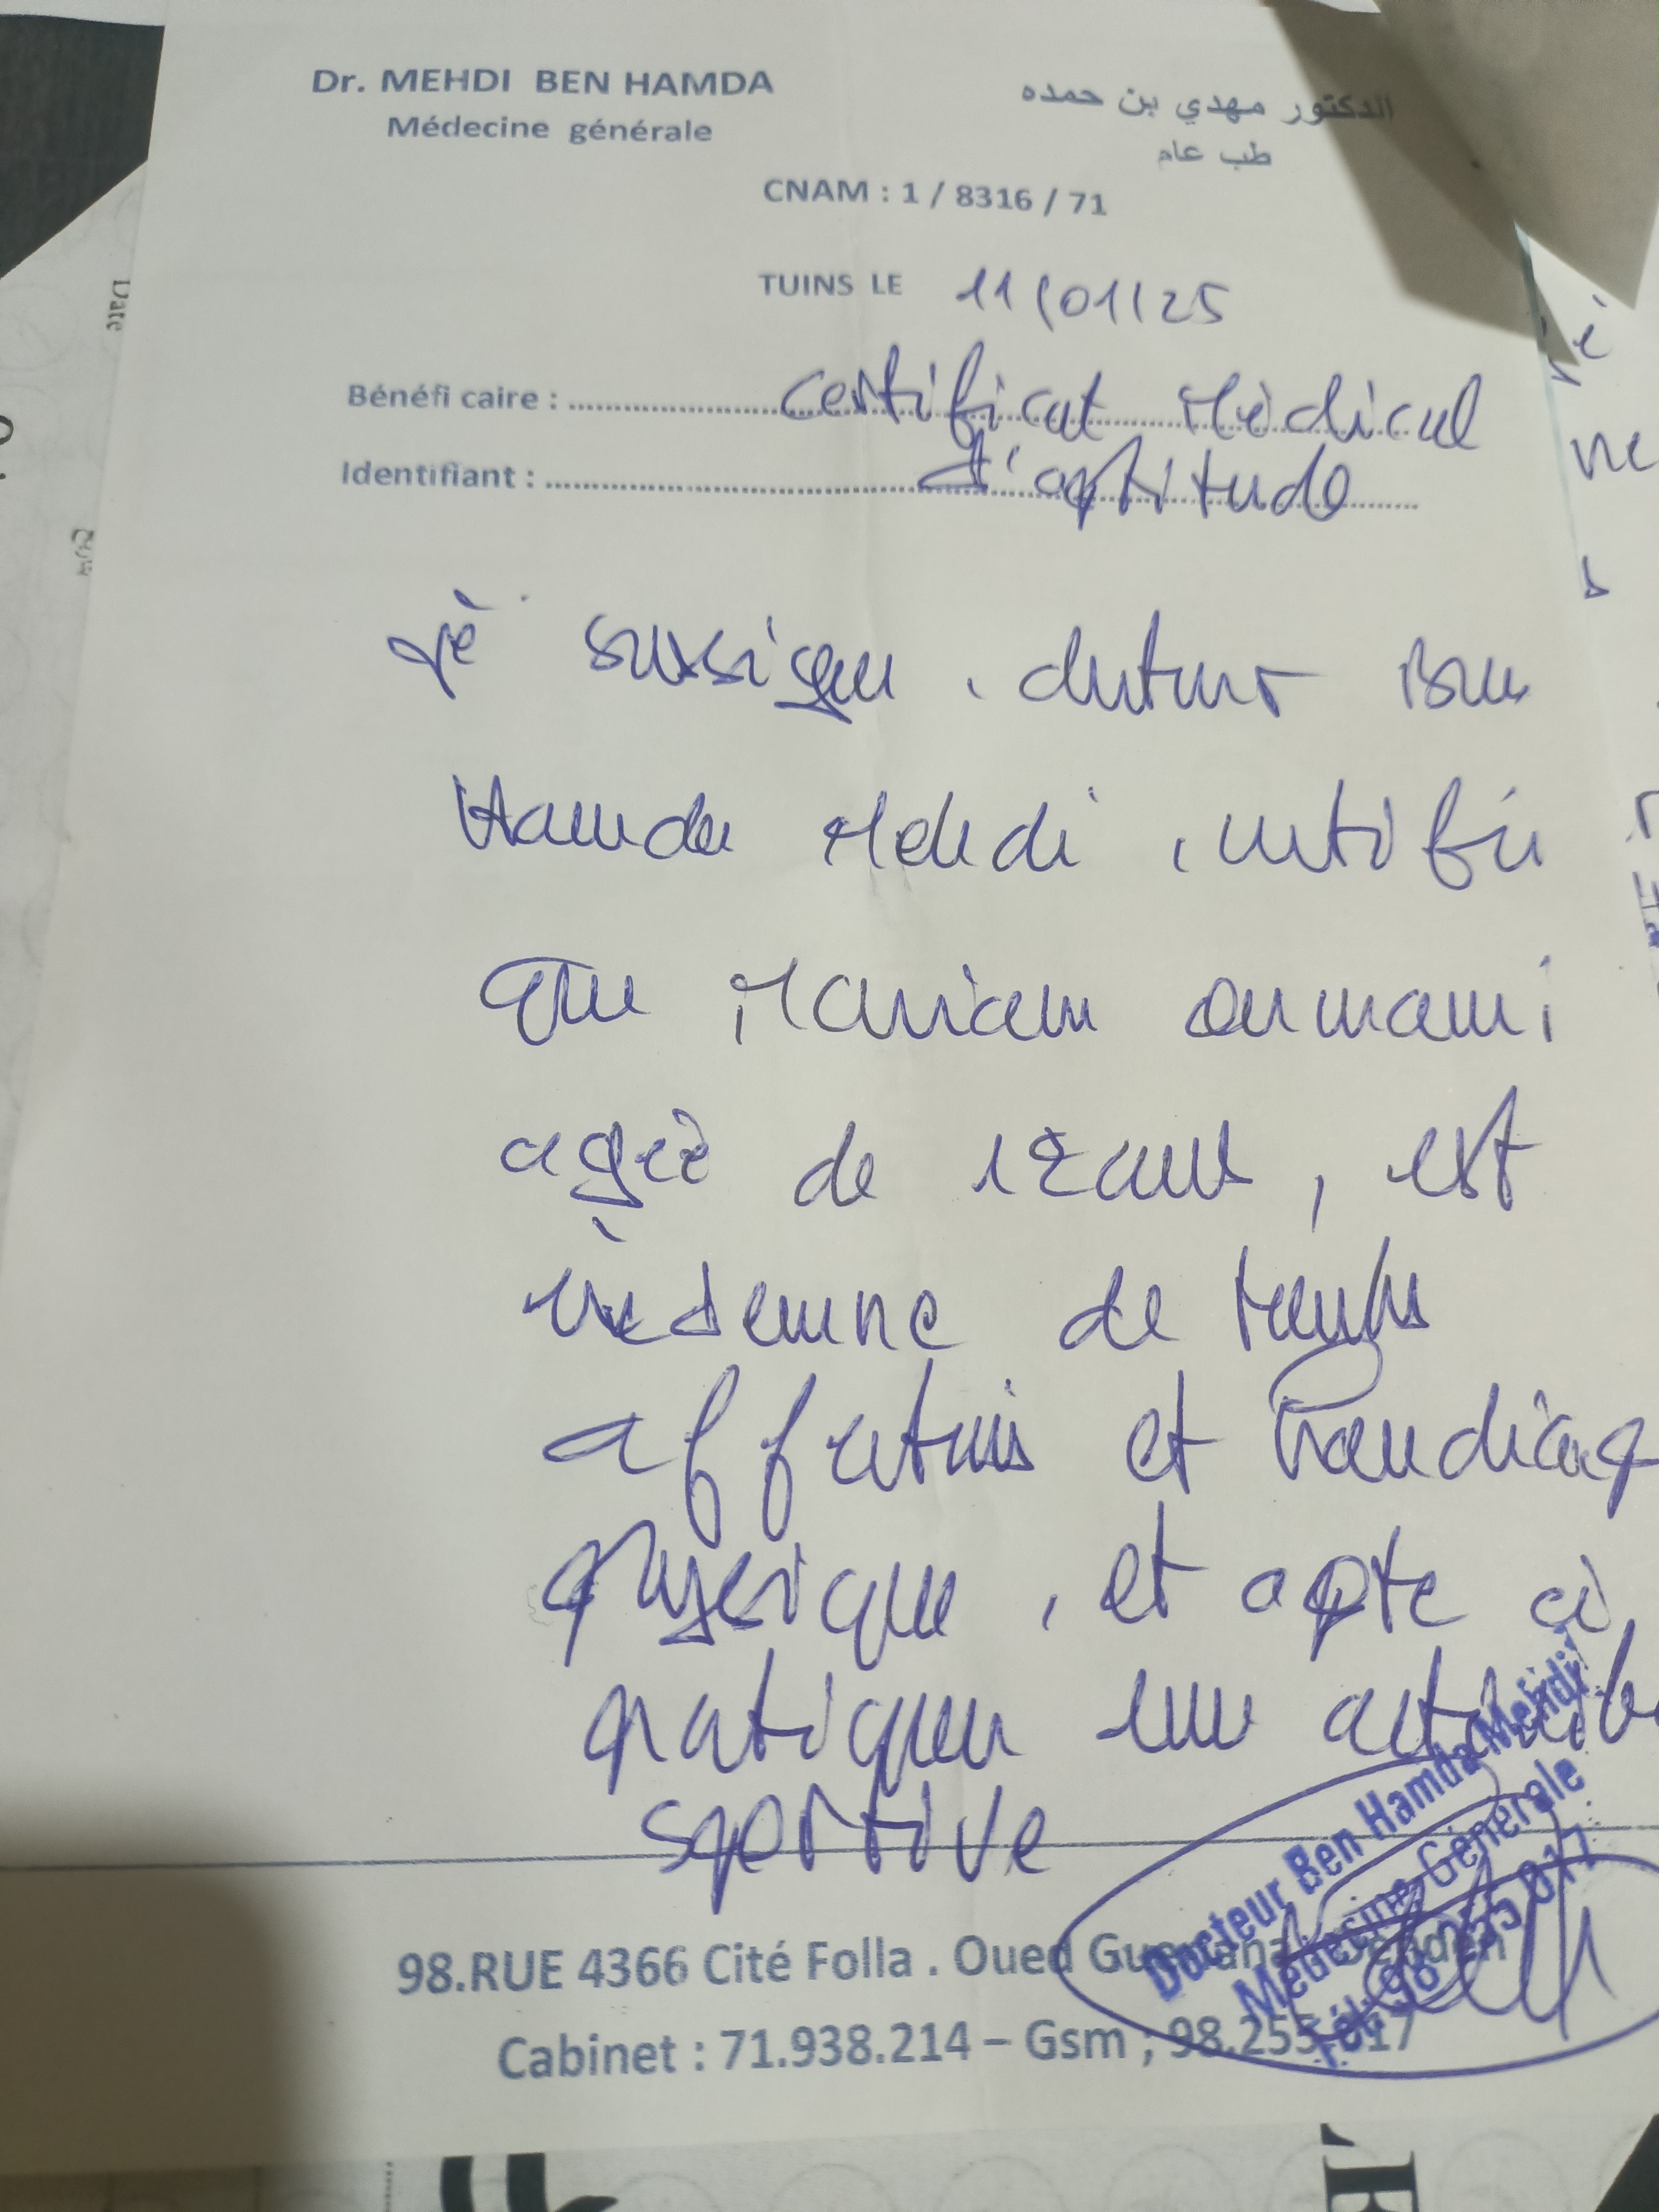 Dr. MEHDI BEN HAMDA
Médecine générale
الدكتور مهدي بن حمده
طب عام
CNAM : 1 / 8316 / 71
TUINS LE 11/01/25
Bénéfi caire : certificat Médical
Identifiant : d'aptitude
Date
je soussigne, docteur Ben
Hamda Mehdi, certifie
que Mariam
agée de 12 ans, est
indemne de toutes
affections et handicap
physique, et apte à
pratiquer une activité
sportive
Docteur Ben Hamda Mehdi
Médecine Générale
Tél: 98 255 017
98.RUE 4366 Cité Folla . Oued
Cabinet : 71.938.214 – Gsm ; 98.255.017